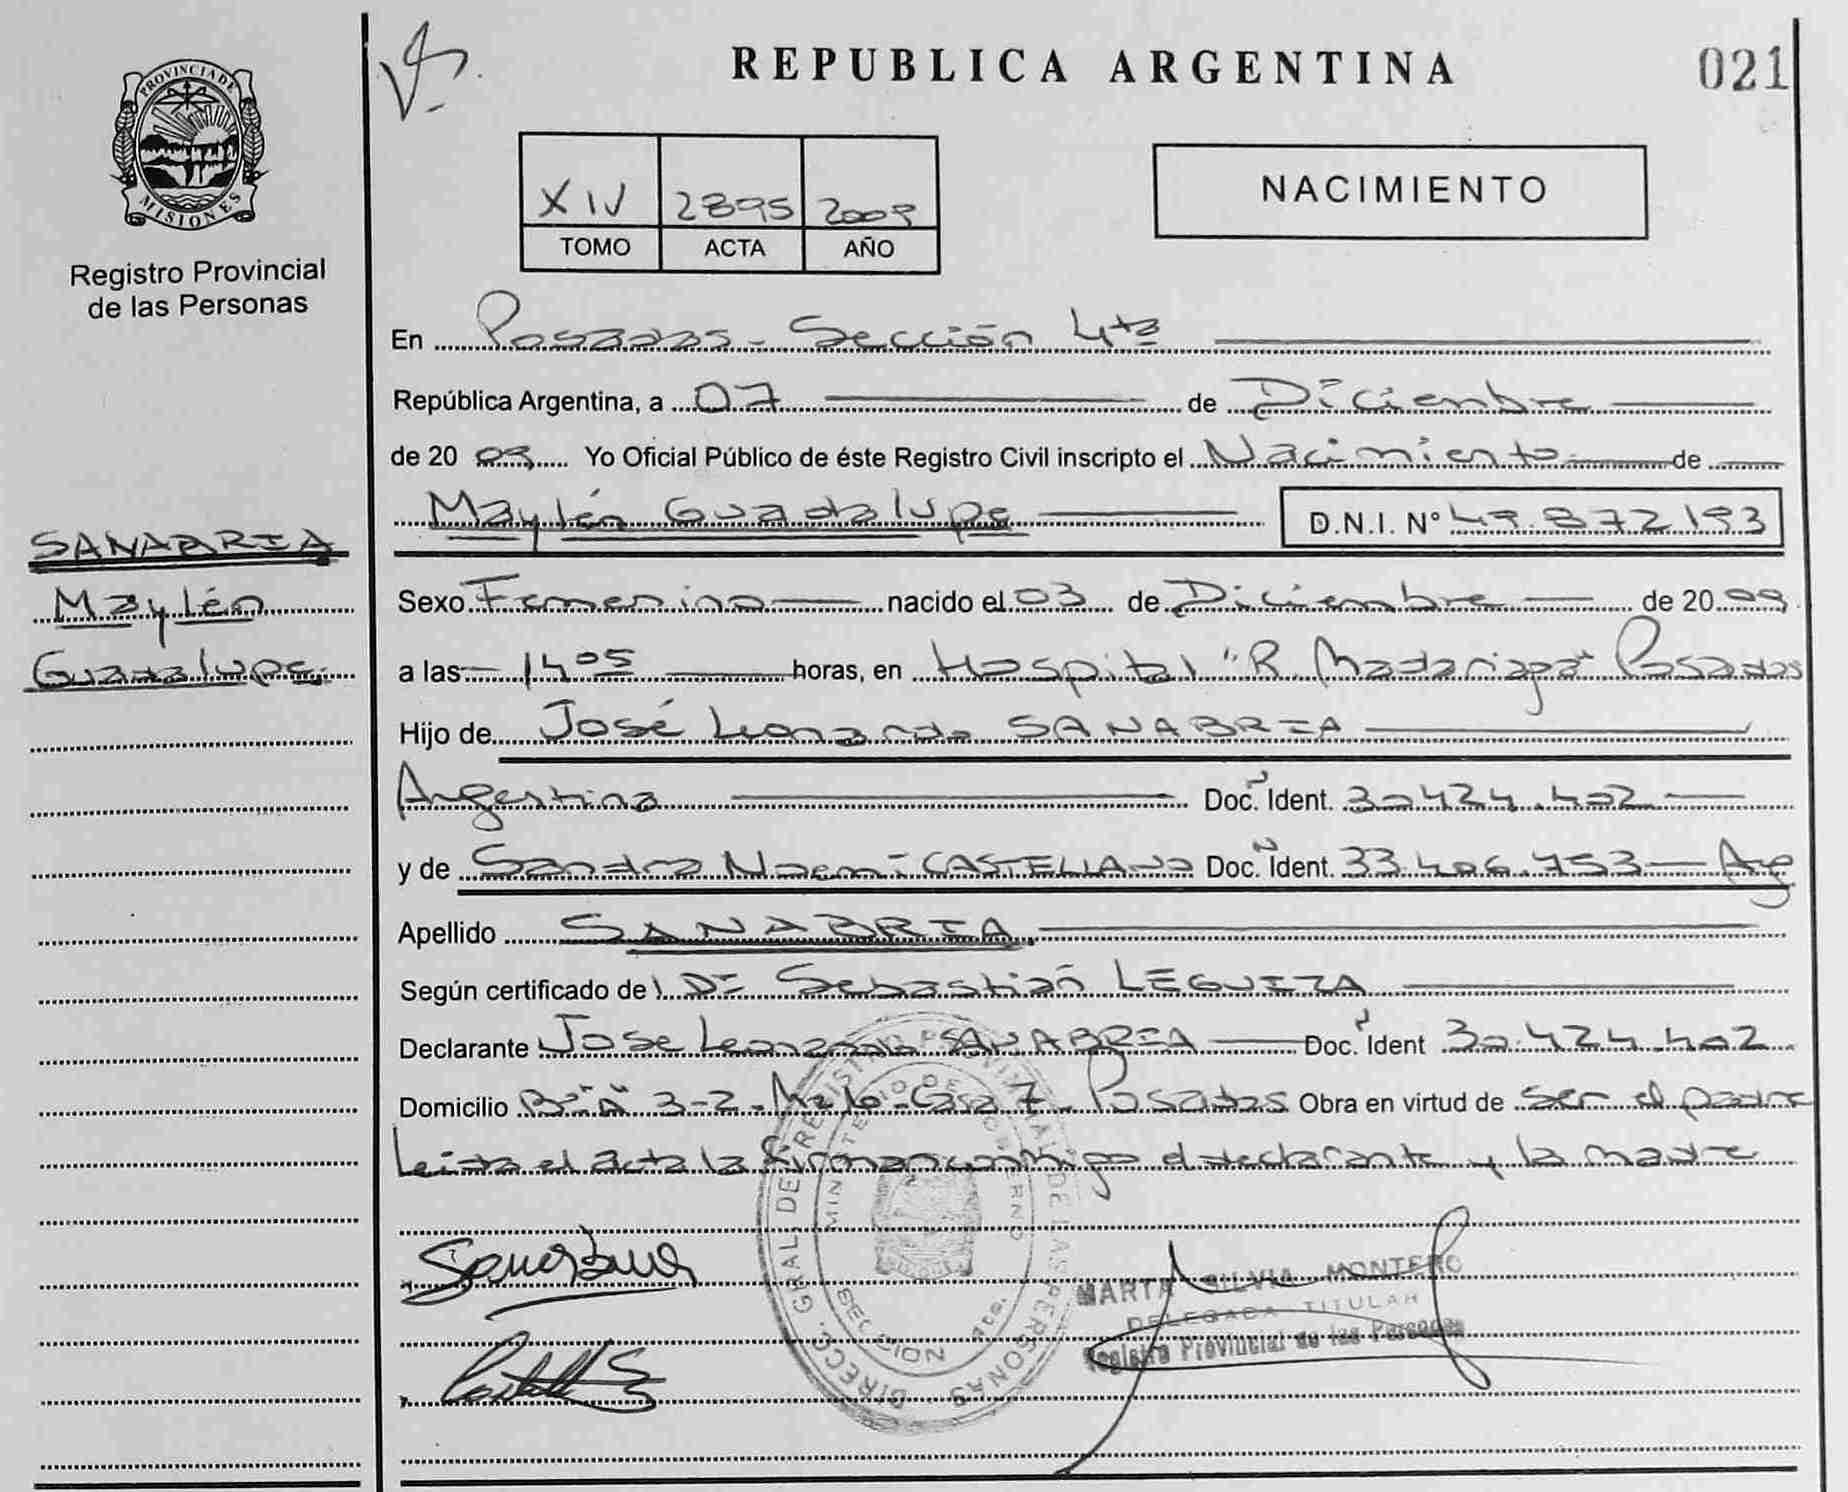 PROVINCIA DE
MISIONES
Registro Provincial
de las Personas
SANABRIA
Maylén
Guadalupe.
REPUBLICA ARGENTINA
021
XIV 2895 2009
TOMO ACTA AÑO
NACIMIENTO
En Posadas - Sección 4ta
República Argentina, a 07 de Diciembre
de 20 09 Yo Oficial Público de éste Registro Civil inscripto el Nacimiento de
Maylén Guadalupe D.N.I. N° 49.872.193
Sexo Femenino nacido el 03 de Diciembre de 20 09
a las 14 05 horas, en Hospital "R. Madariaga" Posadas
Hijo de José Leonardo SANABRIA
Argentina Doc. Ident. 30.424.402
y de Sandra Noemí CASTELLANO Doc. Ident. 33.406.753 Arg
Apellido SANABRIA
Según certificado del Dr Sebastián LEGUIZA
Declarante Jose Leonardo SANABRIA Doc. Ident 30.424.402
Domicilio 3-2 - Casa 7 - Posadas Obra en virtud de ser el padre
Leida el acta la firman conmigo el declarante y la madre
DIRECC. GRAL. DE REGISTRO PROVINCIAL DE LAS PERSONAS
MINISTERIO DE GOBIERNO
SECCION 4ta.
MARTA SILVIA MONTERO
DELEGADA TITULAR
Registro Provincial de las Personas